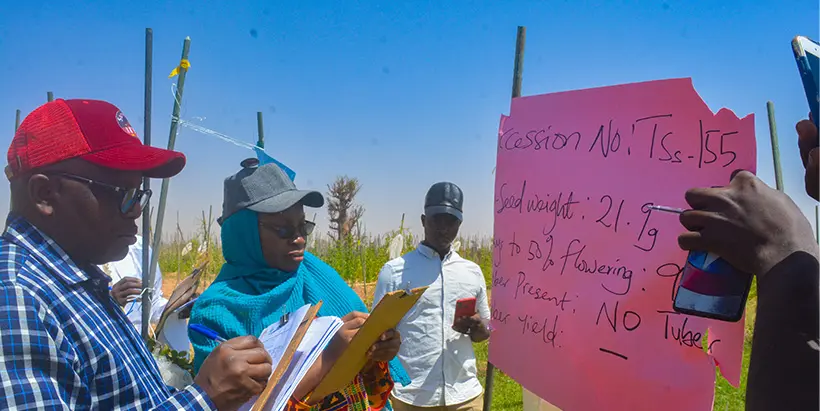 ccession No: TSs-155
Seed weight: 21.9g
to 50% flowering:
er Present:
er Yield: No Tuber